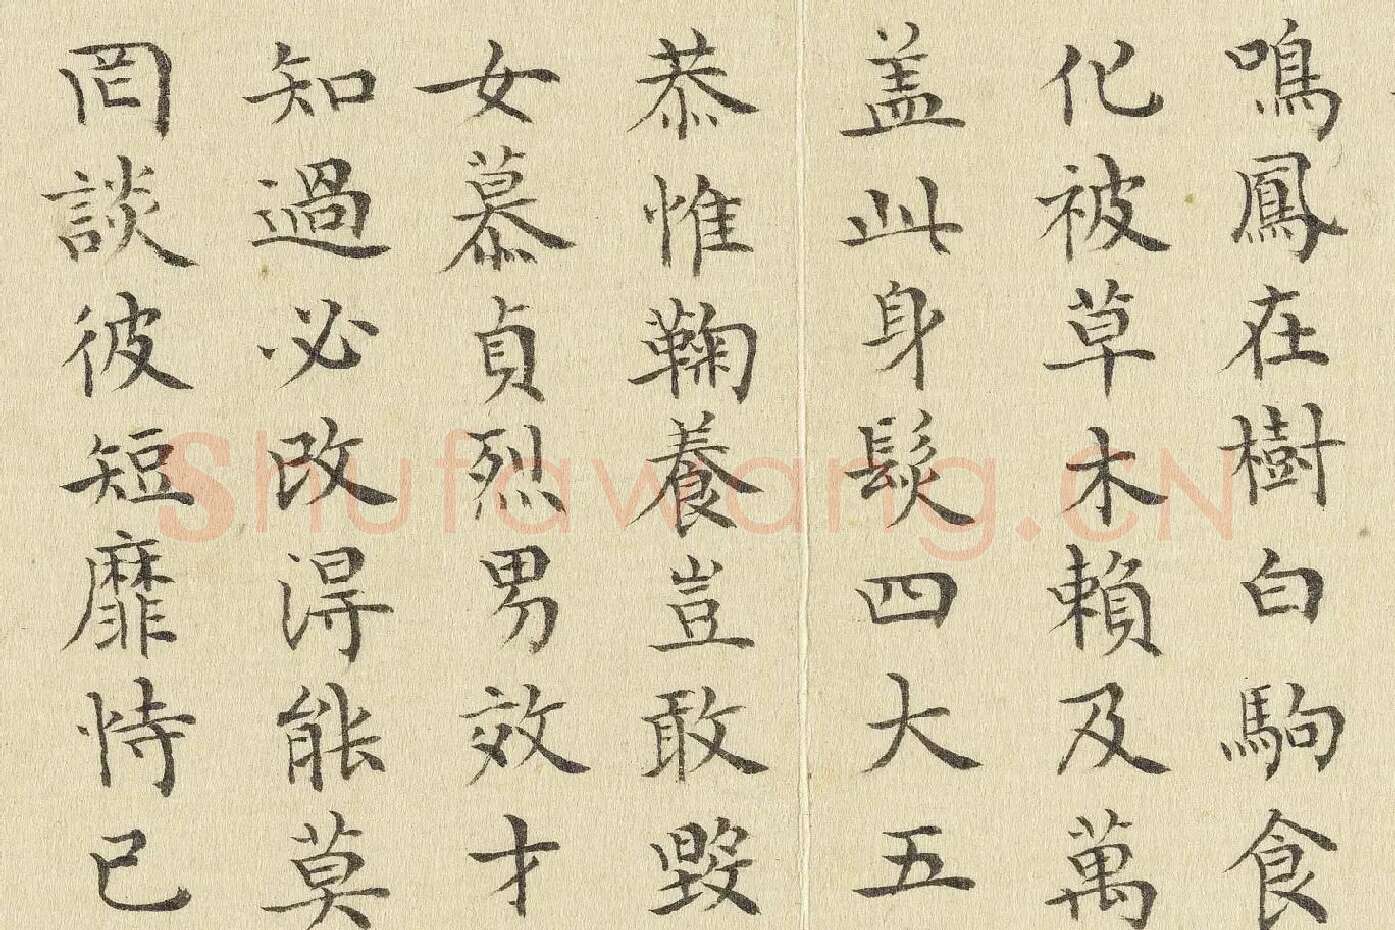 鳴鳳在樹白駒食
化被草木賴及萬
盖此身髮四大五
恭惟鞠養豈敢毀
女慕貞烈男效才
知過必改得能莫
罔談彼短靡恃己
Shufawang.CN